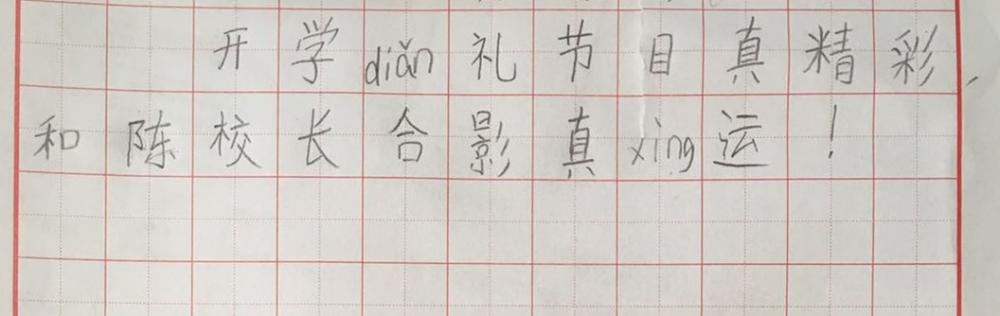 开学diǎn礼节目真精彩，
和陈校长合影真xìng运！